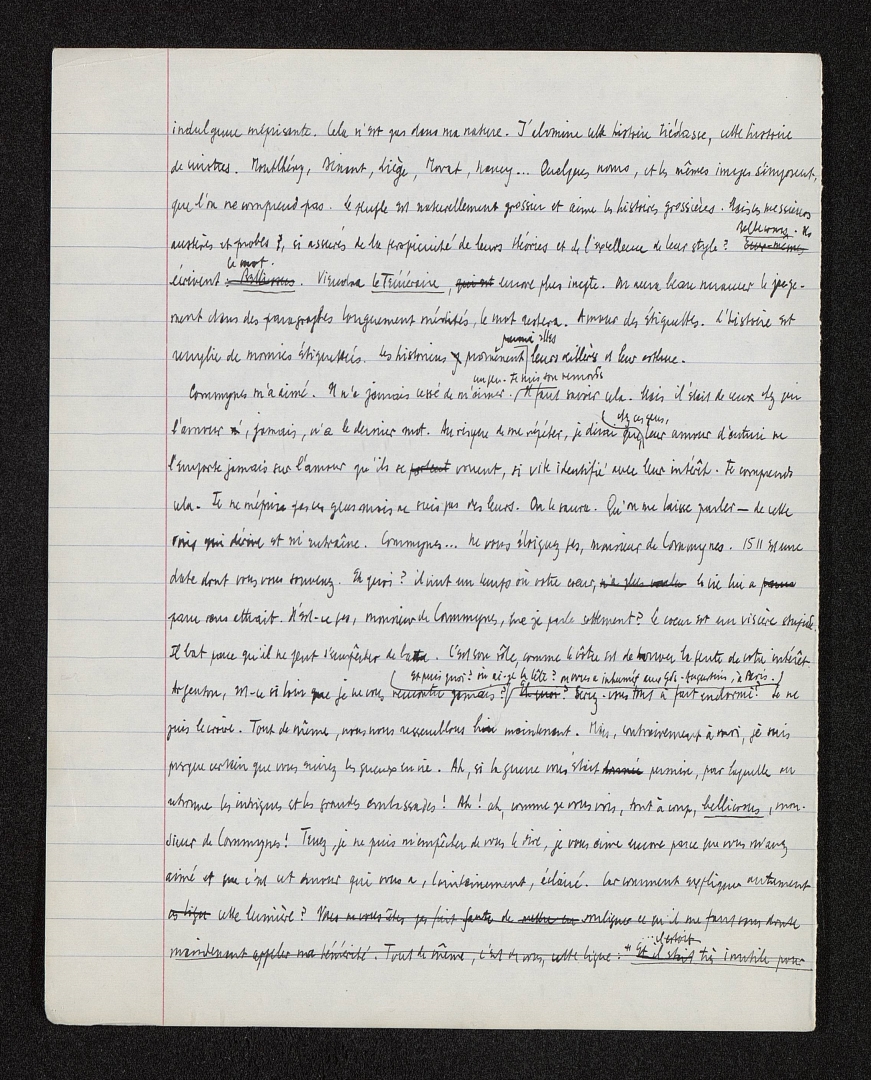 indulgence méprisante. Cela n'est pas dans ma nature. J'élimine cette histoire tiédasse, cette histoire
de vivotres. Montlhéry, Dinant, Liège, Morat, Nancy... Quelques noms, et les mêmes images s'imposent,
que l'on ne comprend pas. Le peuple est naturellement grossier et aime les histoires grossières. Mais les messieurs
bellicosus. Ils
austères et probes ?, si assurés de la perspicacité de leurs théories et de l'excellence de leur style ? Eux-mêmes
le mot.
écrivent Bellicosus. Viendra le Téméraire, qui est encore plus inepte. On aura beau nuancer le juge-
ment dans des paragraphes longuement médités, le mot restera. Amour des étiquettes. L'histoire est
parmi elles
remplie de momies étiquetées. Les historiens y promènent leurs et leur asthme.
un peu. Je suis son remords
Commynes m'a aimé. Il n'a jamais cessé de m'aimer. Il faut savoir cela. Mais il était de ceux chez qui
chez ces gens,
l'amour, jamais, n'a le dernier mot. Au risque de me répéter, je dirai que leur amour d'autrui ne
l'emporte jamais sur l'amour qu'ils se portent vouent, si vite identifié avec leur intérêt. Je comprends
cela. Je ne méprise pas ces gens mais ne suis pas des leurs. On le saura. Qu'on me laisse parler — de cette
voix qui dérive et m'entraîne. Commynes... Ne vous éloignez pas, monsieur de Commynes. 1511 est une
date dont vous vous souvenez. Et quoi ? il vint un temps où votre cœur, n'a plus voulu la vie lui a
paru sans attrait. N'est-ce pas, monsieur de Commynes, que je parle sottement ? Le cœur est un viscère stupide.
Il bat parce qu'il ne peut s'empêcher de battre. C'est son rôle, comme le vôtre est de trouver la pente de votre intérêt.
Et puis quoi ? où ai-je la tête ? on vous a inhumé aux Gds-Augustins, à Paris.
Argenton, est-ce si loin que je ne vous rencontre jamais ? Et quoi ? Serez-vous tout à fait endormi ? Je ne
puis le croire. Tout de même, nous nous ressemblons bien maintenant. Mais, contrairement à moi, je suis
presque certain que vous enviez les gueux en vie. Ah, si la guerre vous était donnée permise, par laquelle on
retrouve les intrigues et les grandes ambassades ! Ah ! ah, comme je vous vois, tout à coup, bellicosus, mon-
sieur de Commynes ! Tenez, je ne puis m'empêcher de vous le dire, je vous aime encore parce que vous m'avez
aimé et que c'est cet amour qui vous a, lointainement, éclairé. Car comment expliquer autrement
cette lumière ? Vous ne vous êtes pas fait faute de souligner ce qu'il me faut sans doute
maintenant appeler ma témérité. Tout de même, c'est de vous, cette ligne : "
... c'estoit
Et il étoit très inutile pour